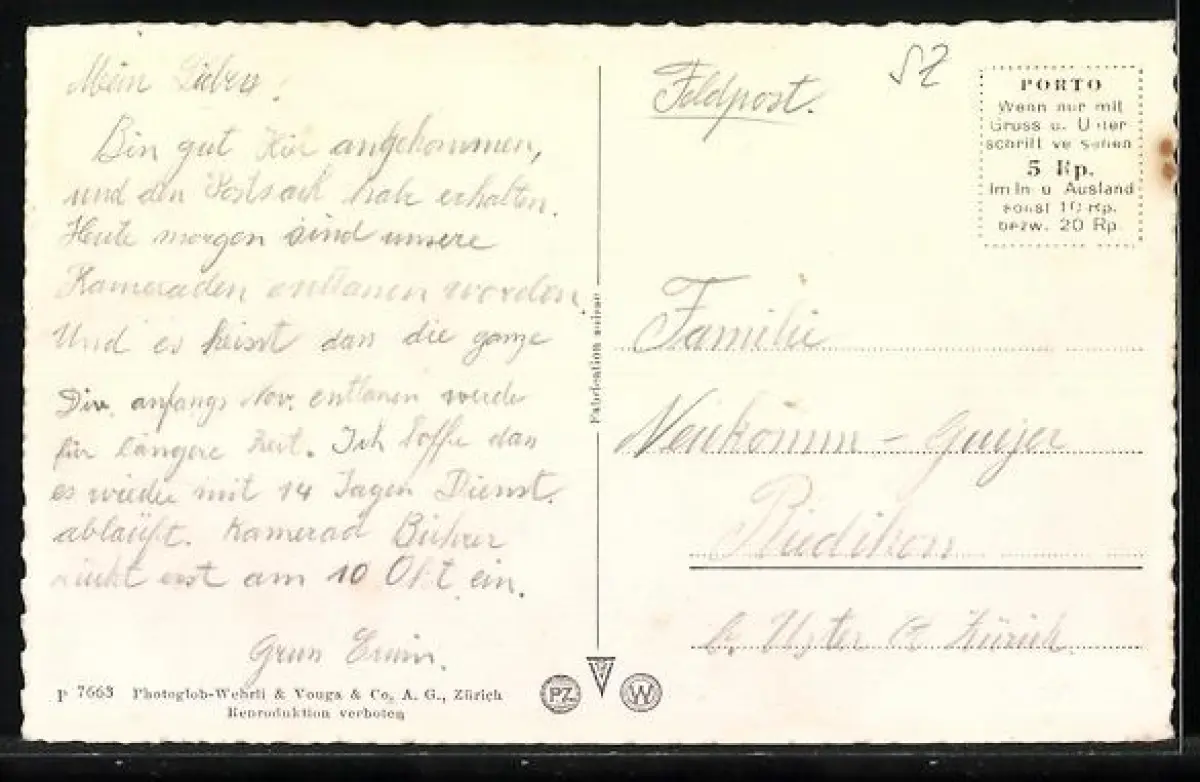 Mein Lieben!
Bin gut hier angekommen,
und den Postsack habe erhalten.
Heute morgen sind unsere
Kameraden entlassen worden.
Und es heisst dass die ganze
Div. anfangs Nov. entlassen werde
für längere Zeit. Ich hoffe dass
es wieder mit 14 Tagen Dienst
abläuft. Kamerad Bührer
rückt erst am 10 Okt. ein.
Gruss Erwin.
P 7663 Photoglob-Wehrli & Vouga & Co. A. G., Zürich
Reproduktion verboten
Fabrication suisse
PZ
W
Feldpost.
SZ
PORTO
Wenn nur mit
Gruss u. Unter
schrift versehen
5 Rp.
Im In u Ausland
sonst 10 Rp.
bezw. 20 Rp.
Familie
Neukomm - Gujer
Riedikon
b. Uster Ct. Zürich.